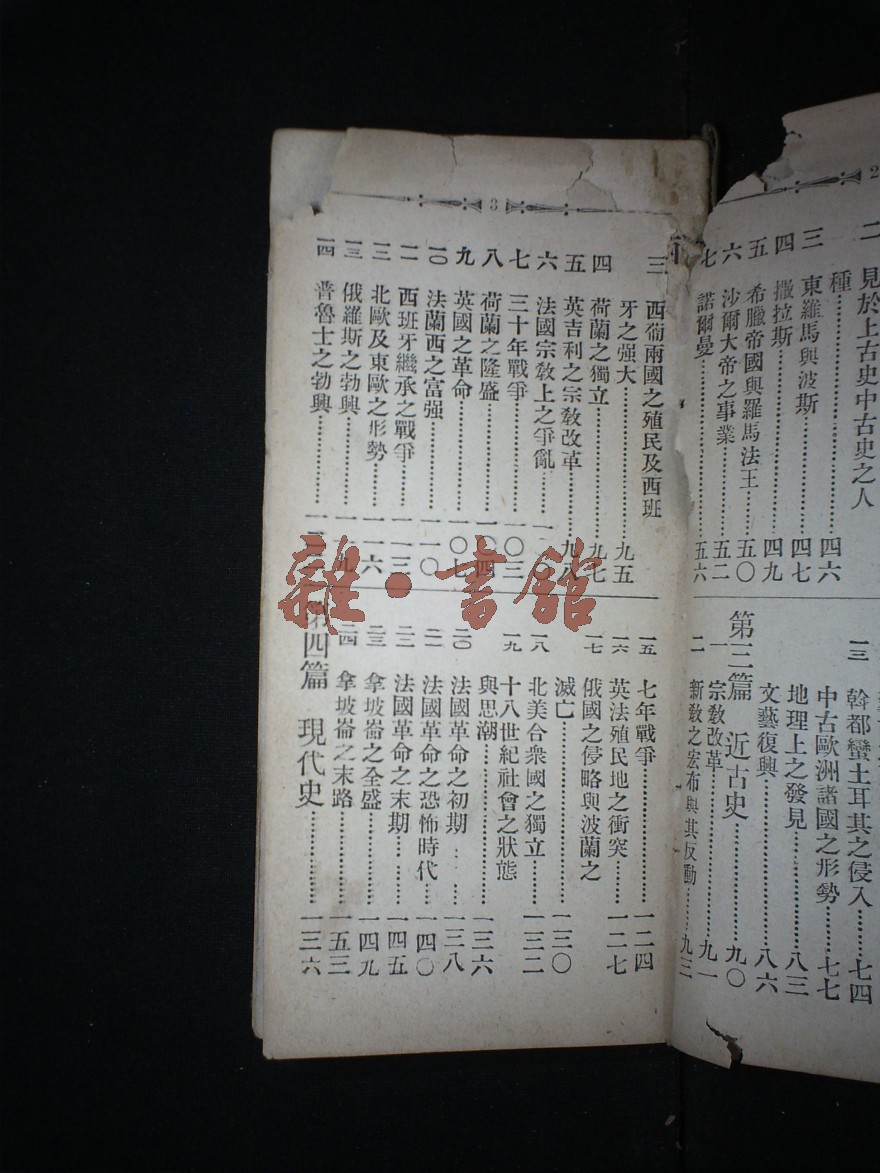 2
二 見於上古史中古史之人
種……四六
三 東羅馬與波斯……四七
四 撒拉斯……四九
五 希臘帝國與羅馬法王……五〇
六 沙爾大帝之事業……五二
七 諾爾曼……五六
一三 斡都蠻土耳其之侵入……七四
中古歐洲諸國之形勢……七七
地理上之發見……八三
文藝復興……八六
第三篇 近古史……九〇
一 宗敎改革……九一
二 新敎之宏布與其反動……九三
3
三 西葡兩國之殖民及西班
牙之强大……九五
四 荷蘭之獨立……九七
五 英吉利之宗敎改革……九八
六 法國宗敎上之爭亂……一〇〇
七 三十年戰爭……一〇三
八 荷蘭之隆盛……一〇四
九 英國之革命……一〇七
一〇 法蘭西之富强……一一〇
一一 西班牙繼承之戰爭……一一三
一二 北歐及東歐之形勢……一一六
一三 俄羅斯之勃興……一一九
一四 普魯士之勃興……一二
一五 七年戰爭……一二四
一六 英法殖民地之衝突……一二七
一七 俄國之侵略與波蘭之
滅亡……一三〇
一八 北美合衆國之獨立……一三二
一九 十八世紀社會之狀態
與思潮……一三六
二〇 法國革命之初期……一三八
二一 法國革命之恐怖時代……一四〇
二二 法國革命之末期……一四五
二三 拿坡崙之全盛……一四九
二四 拿坡崙之末路……一五三
第四篇 現代史……一三六
雜·書館